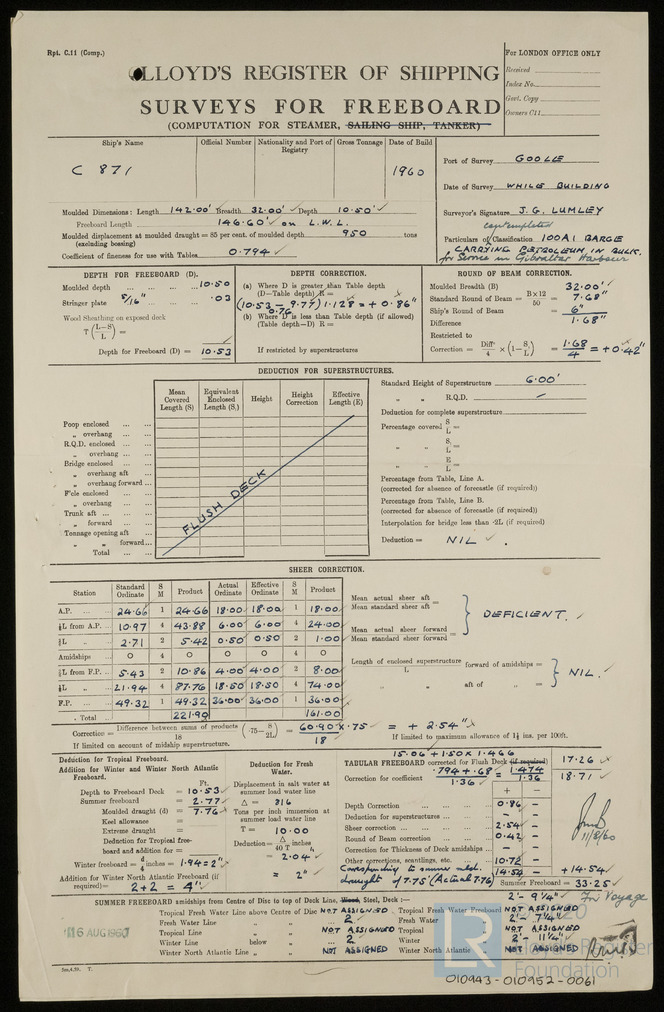 Rpt. C.11 (Comp.)
For LONDON OFFICE ONLY
LLOYD'S REGISTER OF SHIPPING
Received
Index No.
SURVEYS FOR FREEBOARD
Govt. Copy
Owners C11
(COMPUTATION FOR STEAMER, SAILING SHIP, TANKER)
Ship's Name Official Number Nationality and Port of Registry Gross Tonnage Date of Build
C 871 1960
Port of Survey GOOLE
Date of Survey WHILE BUILDING
Moulded Dimensions: Length 142.00' Breadth 32.00' Depth 10.50'
Surveyor's Signature J.G. LUMLEY
Freeboard Length 146.60' on L.W.L.
contemplated
Moulded displacement at moulded draught = 85 per cent. of moulded depth 950 tons
(excluding bossing)
Particulars of Classification 100A1 BARGE
CARRYING PETROLEUM IN BULK.
Coefficient of fineness for use with Tables 0.794
for Service in Gibraltar Harbour
DEPTH FOR FREEBOARD (D).
Moulded depth 10.50
Stringer plate 5/16" .03
Wood Sheathing on exposed deck
T (L-S/L) =
Depth for Freeboard (D) = 10.53
DEPTH CORRECTION.
(a) Where D is greater than Table depth
(D—Table depth) R =
(10.53 - 9.77) 1.128 = + 0.86"
0.76
(b) Where D is less than Table depth (if allowed)
(Table depth—D) R =
If restricted by superstructures
ROUND OF BEAM CORRECTION.
Moulded Breadth (B) 32.00'
Standard Round of Beam = B×12/50 = 7.68"
Ship's Round of Beam = 6"
Difference 1.68"
Restricted to
Correction = Diff/4 × (1-S₁/L) = 1.68/4 = +0.42"
DEDUCTION FOR SUPERSTRUCTURES.
Mean Covered Length (S) Equivalent Enclosed Length (S₁) Height Height Correction Effective Length (E)
Poop enclosed
„ overhang
R.Q.D. enclosed
„ overhang
Bridge enclosed
„ overhang aft
„ overhang forward
F'cle enclosed
„ overhang
Trunk aft
„ forward
Tonnage opening aft
„ „ forward
Total
FLUSH DECK
Standard Height of Superstructure 6.00'
„ „ R.Q.D. —
Deduction for complete superstructure
Percentage covered S/L =
„ „ S₁/L =
„ „ E/L =
Percentage from Table, Line A.
(corrected for absence of forecastle (if required))
Percentage from Table, Line B.
(corrected for absence of forecastle (if required))
Interpolation for bridge less than ·2L (if required)
Deduction = NIL.
SHEER CORRECTION.
Station Standard Ordinate S M Product Actual Ordinate Effective Ordinate S M Product
A.P. 24.66 1 24.66 18.00 18.00 1 18.00
⅙L from A.P. 10.97 4 43.88 6.00 6.00 4 24.00
⅓L „ 2.71 2 5.42 0.50 0.50 2 1.00
Amidships O 4 O O O 4 O
⅓L from F.P. 5.43 2 10.86 4.00 4.00 2 8.00
⅙L „ 21.94 4 87.76 18.50 18.50 4 74.00
F.P. 49.32 1 49.32 36.00 36.00 1 36.00
Total 221.90 161.00
Mean actual sheer aft
Mean standard sheer aft =
Mean actual sheer forward
Mean standard sheer forward =
DEFICIENT.
Length of enclosed superstructure forward of amidships =
L
„ aft of „ =
NIL.
Correction = Difference between sums of products/18 (·75 - S/2L) = 60.90 × .75/18 = + 2.54"
If limited on account of midship superstructure.
If limited to maximum allowance of 1½ ins. per 100ft.
Deduction for Tropical Freeboard.
Addition for Winter and Winter North Atlantic Freeboard.
Ft.
Depth to Freeboard Deck = 10.53
Summer freeboard = 2.77
Moulded draught (d) = 7.76
Keel allowance =
Extreme draught =
Deduction for Tropical freeboard and addition for =
Winter freeboard = d/4 inches = 1.94 = 2"
Addition for Winter North Atlantic Freeboard (if required) =
2+2 = 4"
Deduction for Fresh Water.
Displacement in salt water at summer load water line
Δ = 816
Tons per inch immersion at summer load water line
T = 10.00
Deduction = Δ/40 T
= 2.04
= 2"
15.06 + 1.50 × 1.466
TABULAR FREEBOARD corrected for Flush Deck (if required) 17.26
Correction for coefficient .794 + .68/1.36 = 1.474/1.36 18.71
+ −
Depth Correction 0.86 −
Deduction for superstructures − −
Sheer correction 2.54 −
Round of Beam correction 0.42 −
Correction for Thickness of Deck amidships − −
Other corrections, scantlings, etc. 10.72 −
Corresponding to summer mld.
draught of 7.75' (Actual 7.76)
14.54 − +14.54
Summer Freeboard = 33.25
11/8/60
SUMMER FREEBOARD amidships from Centre of Disc to top of Deck Line, Wood, Steel, Deck :—
2'- 9¼" For Voyage
Tropical Fresh Water Line above Centre of Disc NOT ASSIGNED
Fresh Water Line „ „ 2
Tropical Line „ „ NOT ASSIGNED
Winter Line below „ 2
Winter North Atlantic Line „ „ NOT ASSIGNED
Tropical Fresh Water Freeboard NOT ASSIGNED
Fresh Water „ 2'- 7¼"
Tropical „ NOT ASSIGNED
Winter „ 2'- 11¼"
Winter North Atlantic „ NOT ASSIGNED
16 AUG 1960
5m,4.59. T.
Lloyd's Register
Foundation
010943-010952-0061